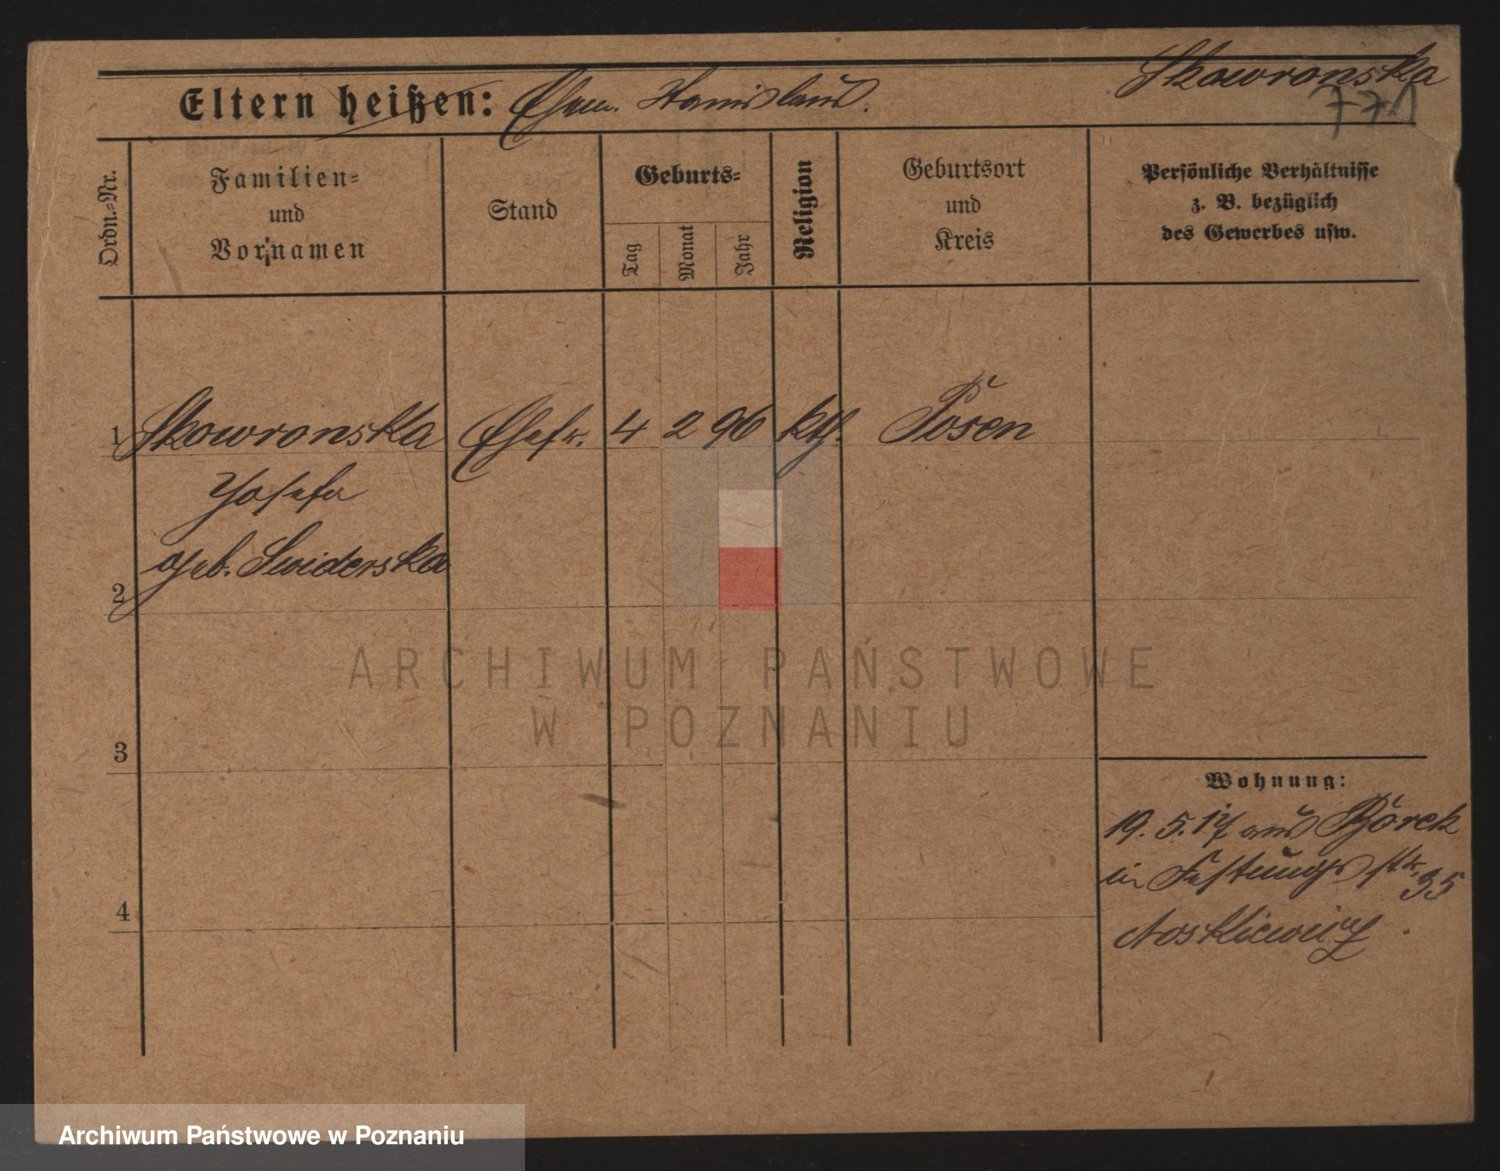 Skowronska
771
Eltern heißen: Ehem. Stanislaus.
Ordn.=Nr.
Familien=
und
Vornamen
Stand
Geburts=
Tag
Monat
Jahr
Religion
Geburtsort
und
Kreis
Persönliche Verhältnisse
z. B. bezüglich
des Gewerbes usw.
1 Skowronska Ehefr. 4 2 96 kth. Posen
Josefa
geb. Swiderska
2
3
4
Wohnung:
19. 5. 17 aus Görek
in Festungsstr. 35
Noskiewicz
ARCHIWUM PAŃSTWOWE
W POZNANIU
Archiwum Państwowe w Poznaniu